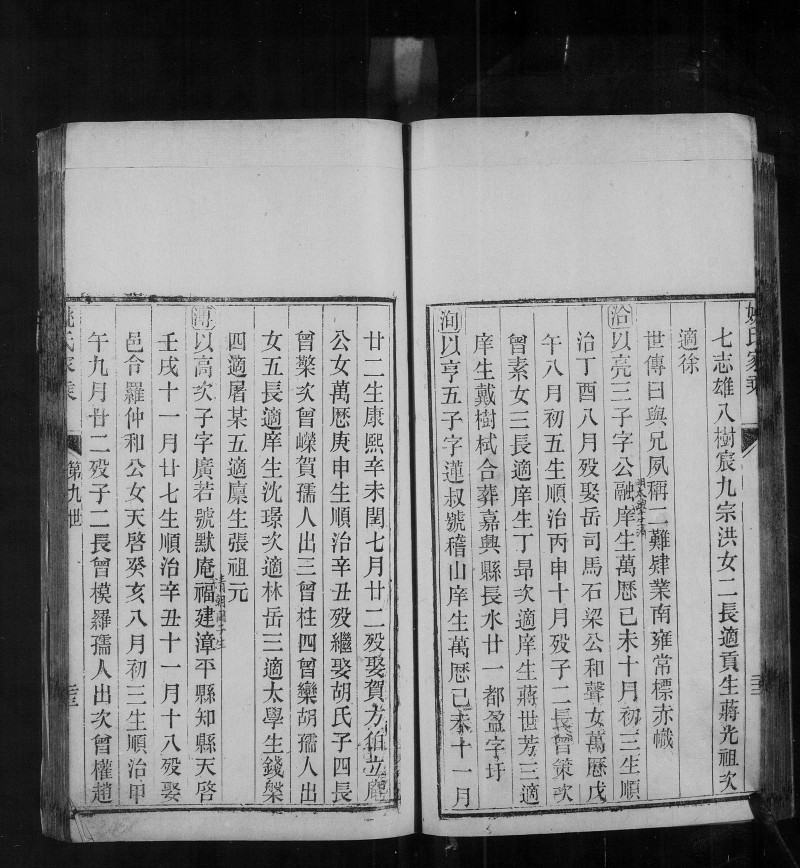 姚氏家乘
三三
七志雄八樹宸九宗洪女二長適貢生蔣光祖次
適徐
世傳曰與兄夙稱二難肄業南雍常標赤幟
洽以亮三子字公融庠生萬歷己未十月初三生順
治丁酉八月歿娶岳司馬石梁公和聲女萬歷戊
午八月初五生順治丙申十月歿子二長曾策次
曾素女三長適庠生丁昂次適庠生蔣世芳三適
庠生戴樹栻合葬嘉興縣長水廿一都盈字圩
洵以亨五子字蓮叔號稽山庠生萬歷己未十一月
廿二生康熙辛未閏七月廿二歿娶賀方伯立菴
公女萬歷庚申生順治辛丑歿繼娶胡氏子四長
曾檠次曾嶸賀孺人出三曾柱四曾欒胡孺人出
女五長適庠生沈璟次適林岳三適太學生錢槃
四適屠某五適廩生張祖元
溥以高次子字廣若號默庵福建漳平縣知縣天啓
壬戌十一月廿七生順治辛丑十一月十八歿娶
邑令羅仲和公女天啓癸亥八月初三生順治甲
午九月廿二歿子二長曾模羅孺人出次曾權趙
姚氏家乘
第九世
三三